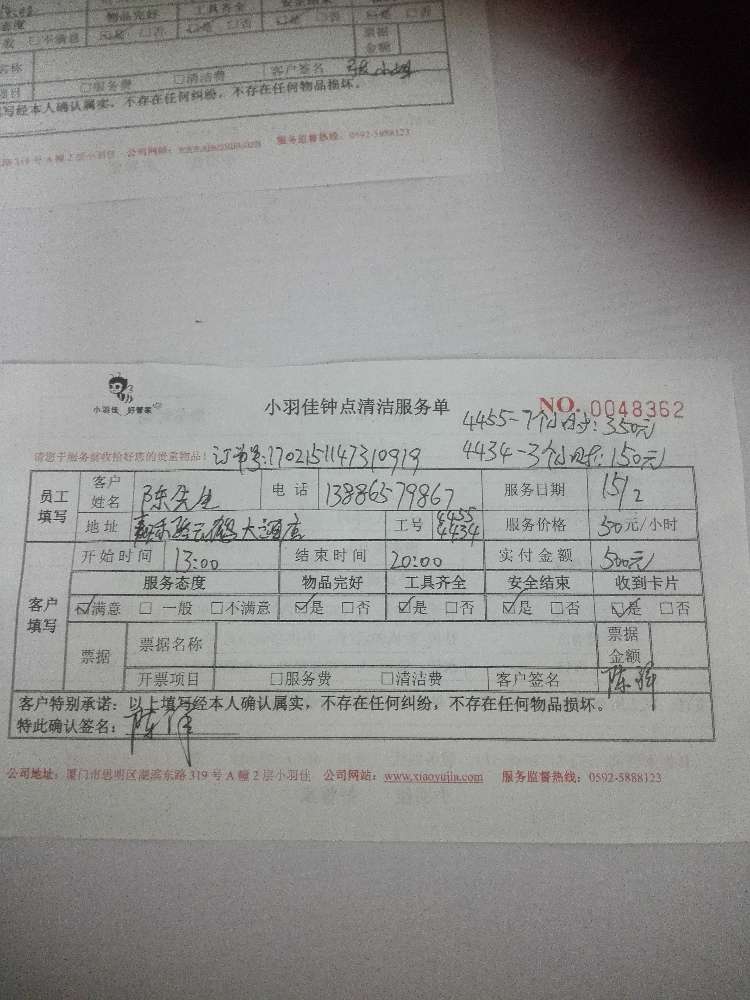 物品完好 工具齐全 安全结束
不满意 是 否 是 否 是 否 是 否
票据
金额
名称
项目 □服务费 □清洁费 客户签名 张小姐
填写经本人确认属实，不存在任何纠纷，不存在任何物品损坏。
路319号A幢2层小羽佳 公司网站：www.xiaoyujia.com 服务监督热线：0592-5888123
小羽佳 好管家
小羽佳钟点清洁服务单
NO. 0048362
4455-7个小时：350元
4434-3个小时：150元
请您于服务前收捡好您的贵重物品！
订单号：1702151147310919
员工填写
客户姓名 陈先生 电话 13886579867 服务日期 15/2
地址 大酒店 工号 4455 4434 服务价格 50元/小时
客户填写
开始时间 13:00 结束时间 20:00 实付金额 500元
服务态度 物品完好 工具齐全 安全结束 收到卡片
☑满意 □一般 □不满意 ☑是 □否 ☑是 □否 ☑是 □否 ☑是 □否
票据 票据名称 票据金额
开票项目 □服务费 □清洁费 客户签名
客户特别承诺：以上填写经本人确认属实，不存在任何纠纷，不存在任何物品损坏。
特此确认签名：
公司地址：厦门市思明区湖滨东路319号A幢2层小羽佳 公司网站：www.xiaoyujia.com 服务监督热线：0592-5888123